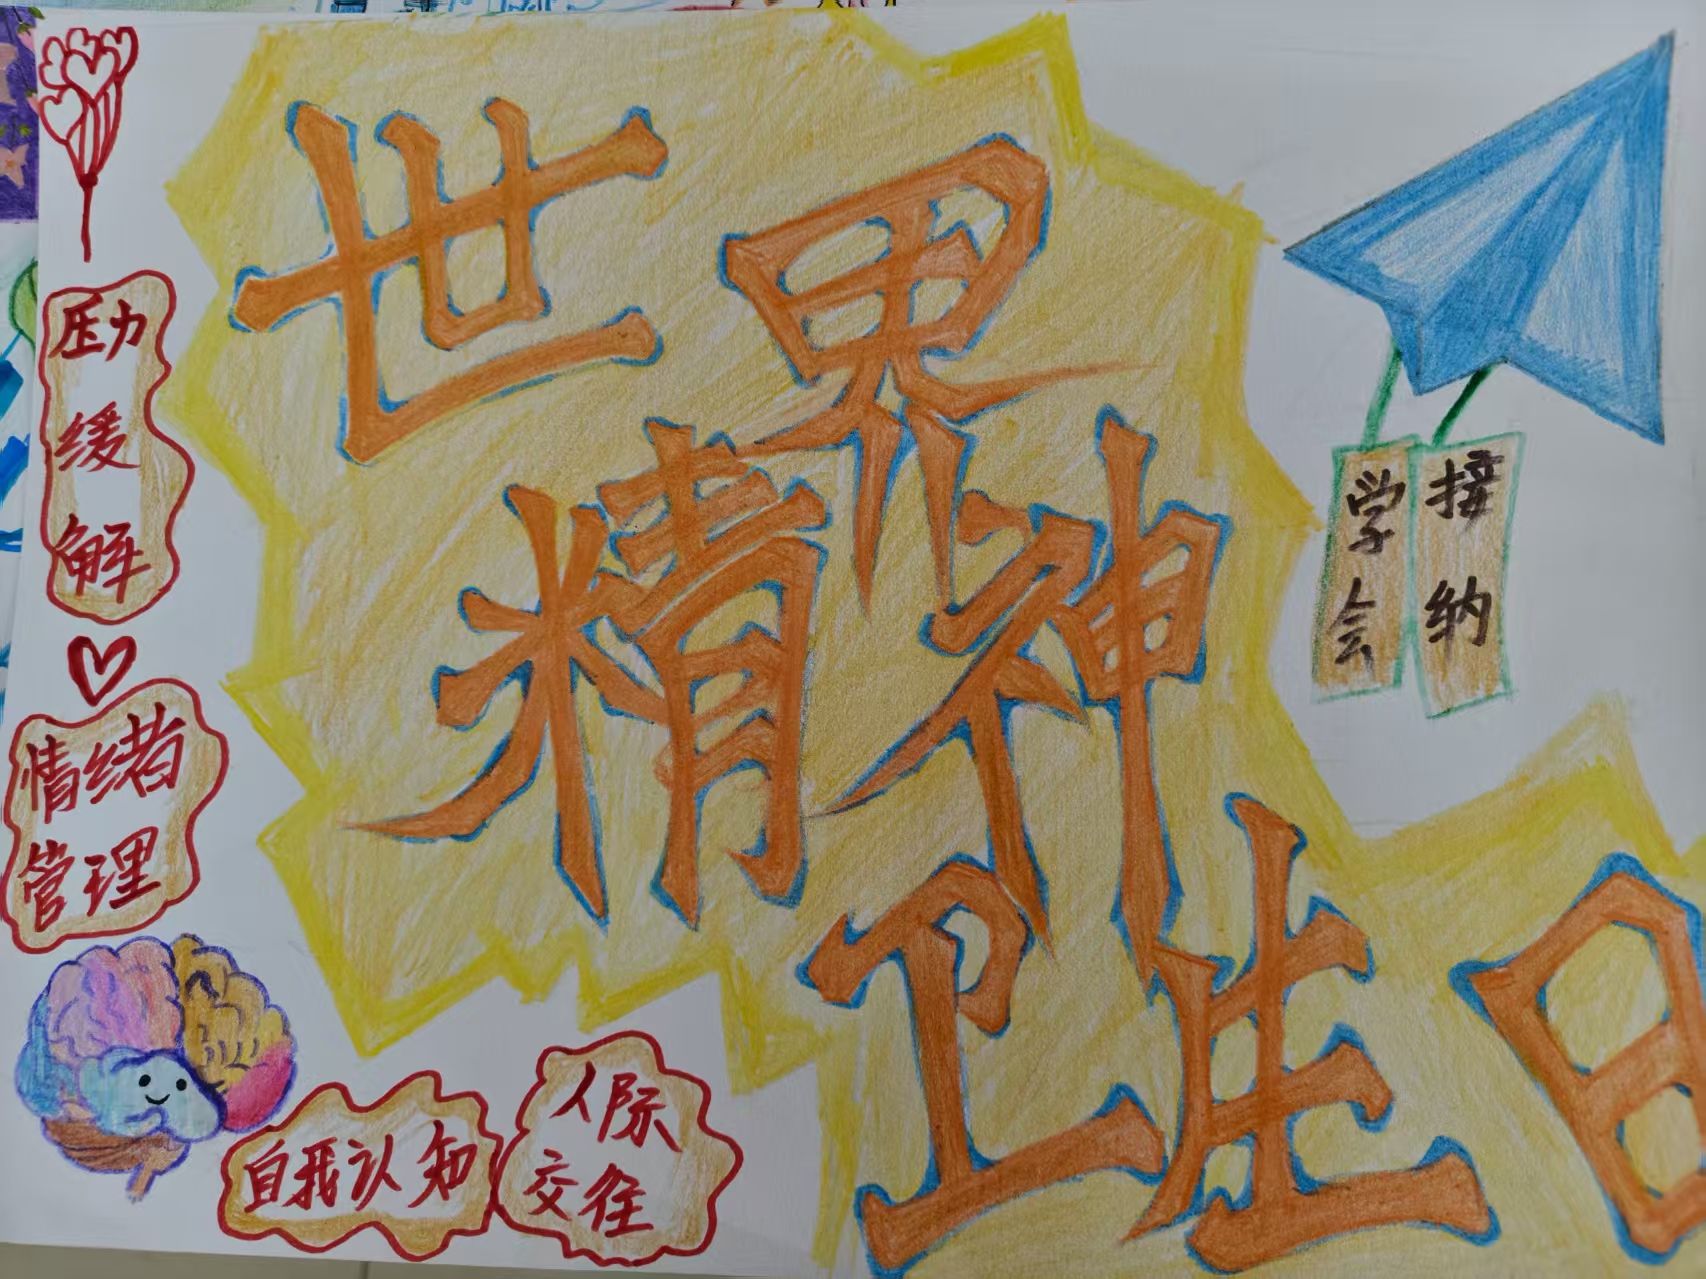 世界
精神
卫生日
学会
接纳
压力
缓
解
情绪
管理
自我认知
人际
交往